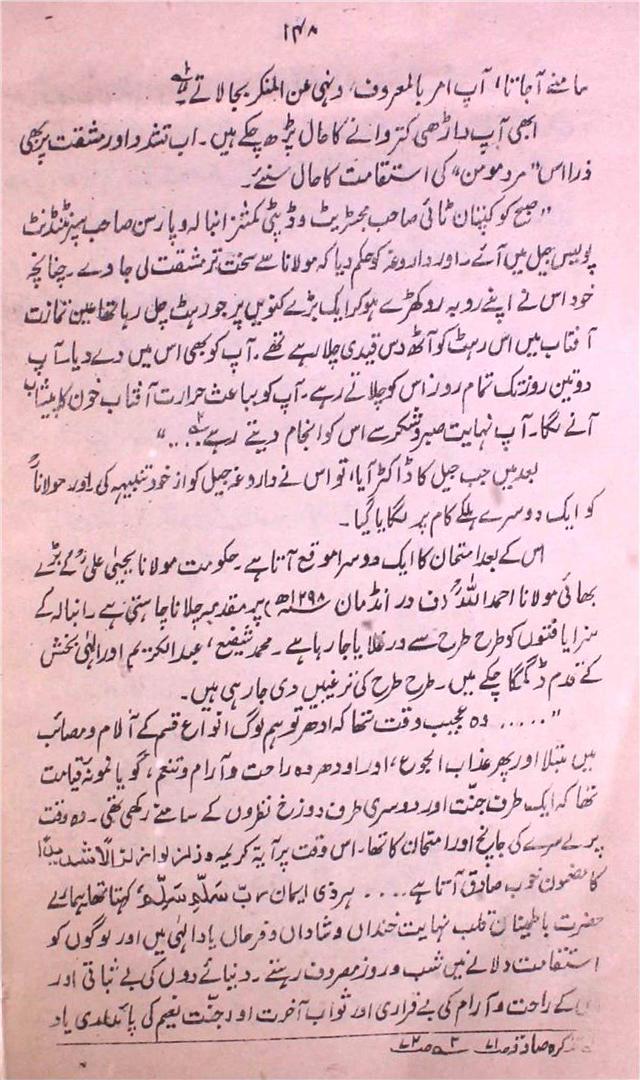 ۱۴۸
سامنے آجاتا، آپ امر بالمعروف، ونہی عن المنکر بجا لاتے ۱ے
ابھی آپ داڑھی کتروانے کا حال پڑھ چکے ہیں۔ اب تشدد اور مشقت پر بھی
ذرا اس "مرد مومن" کی استقامت کا حال سنئے۔
"صبح کو کپتان ٹائی صاحب مجسٹریٹ وڈپٹی کمشنر انبالہ و پارسن صاحب سپرنٹنڈنٹ
پولیس جیل میں آئے۔ اور داروغہ کو حکم دیا کہ مولانا سے سخت تر مشقت لی جاوے۔ چنانچہ
خود اس نے اپنے روبہ رو کھڑے ہو کر ایک بڑے کنویں پر جو رہٹ چل رہا تھا عین تمازت
آفتاب میں اس رہٹ کو آٹھ دس قیدی چلا رہے تھے۔ آپ کو بھی اس میں دے دیا۔ آپ
دو تین روز تک تمام روز اس کو چلاتے رہے۔ آپ کو بباعث حرارت آفتاب خون کا پیشاب
آنے لگا۔ آپ نہایت صبر وشکر سے اس کو انجام دیتے رہے ۲ے ...."
بعد میں جب جیل کا ڈاکٹر آیا، تو اس نے داروغہ جیل کو از خود تنبیہہ کی۔ اور مولاناؒ
کو ایک دوسرے ہلکے کام پر لگایا گیا۔
اس کے بعد امتحان کا ایک دوسرا موقع آتا ہے۔ حکومت مولانا یحییٰ علیؒ کے بڑے
بھائی مولانا احمد اللہؒ (ف در انڈمان ۱۲۹۸ھ) پر مقدمہ چلانا چاہتی ہے۔ انبالہ کے
سزا یافتوں کو طرح طرح سے ورغلایا جا رہا ہے۔ محمد شفیع، عبدالکریم اور الٰہی بخش
کے قدم ڈگمگا چکے ہیں۔ طرح طرح کی ترغیبیں دی جا رہی ہیں۔
"..... وہ عجیب وقت تھا کہ ادھر تو ہم لوگ انواع قسم کے آلام ومصائب
میں مبتلا اور پھر عذاب الجوع، اور اودھر وہ راحت وآرام وتنعم، گویا نمونہ قیامت
تھا کہ ایک طرف جنّت اور دوسری طرف دوزخ نظروں کے سامنے رکھی تھی۔ وہ وقت
پرلے سرے کی جانچ اور امتحان کا تھا۔ اس وقت پر آیۃ کریمہ وزلزلوا زلزالًا شدیدًا
کا مضمون خوب صادق آتا ہے .... ہر ذی ایمان ربّ سَلِّم سَلِّم، کہتا تھا ہمارے
حضرت باطمینان قلب نہایت خنداں وشاداں وفرحاں یاد الٰہی میں اور لوگوں کو
استقامت دلانے میں شب وروز مصروف رہتے۔ دنیائے دوں کی بے ثباتی اور
کے راحت وآرام کی بے قراری اور ثواب آخرت اور جنّت نعیم کی پائداری یاد
تذکرہ صادقہ ص ۷۱ ۲ے ص ۷۲